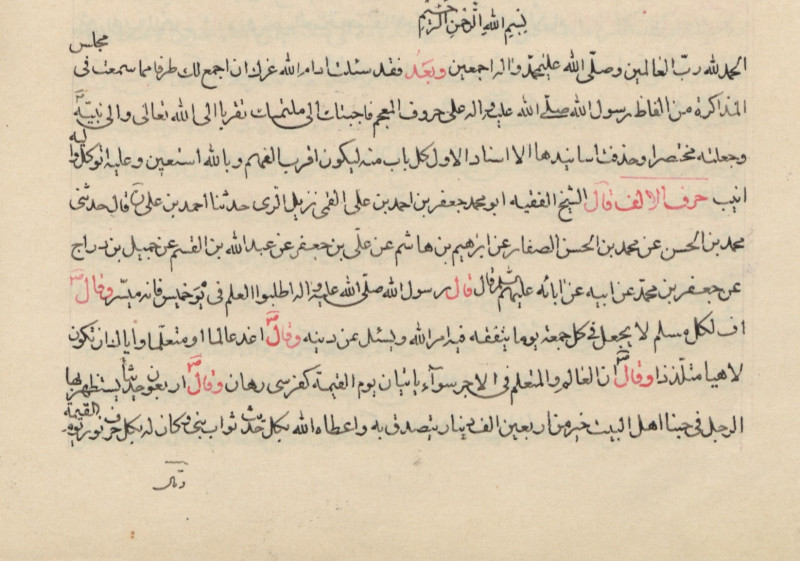 بسم الله الرحمن الرحيم
الحمد لله ربّ العالمين وصلّى الله على محمّد واله اجمعين وبَعدُ فقد سئلت ادام الله عزك ان اجمع لك طرفا مما سمعت فى مجلس
المذاكرة من الفاظ رسول الله صلّى الله عليه واله على حروف المعجم فاجبتك الى ملتمسك تقربا الى الله تعالى والى نبيّه
وجعلته مختصرا وحذفت اسانيدها الا اسناد الاول كل باب منه ليكون اقرب الفهم وبالله استعين وعليه اتوكل واليه
انيب حرف الالف قال الشيخ الفقيه ابو محمد جعفر بن احمد بن على القمى نزيل الرى حدثنا احمد بن على قال حدثنى
محمد بن الحسن عن محمد بن الحسن الصفار عن ابرٰهيم بن هاشم عن علّى بن جعفر عن عبد الله بن القسم عن جميل بن دراج
عن جعفر بن محمّد عن ابيه عن ابائه عليهم قال قال رسول الله صلّى الله عليه واله اطلبوا العلم فى يوم خميس فانه ميسّر وقال
اف لكل مسلم لا يجعل فى كل جمعة يوما يتفقه فيه امر الله ويسئل عن دينه وقال اغد عالما او متعلّما واياك ان تكون
لاهيا متلّذذا وقال ان العالم والمتعلم فى الاجر سوآء ياتيان يوم القيمة كفرسى رهان وقال اربعون حديثا يستظهر بها
الرجل فى حبنا اهل البيت خير من اربعين الف دينار يتصدق به واعطاه الله بكل حديث ثواب نبى وكان له بكل حرف نور يوم القيمة
وقال